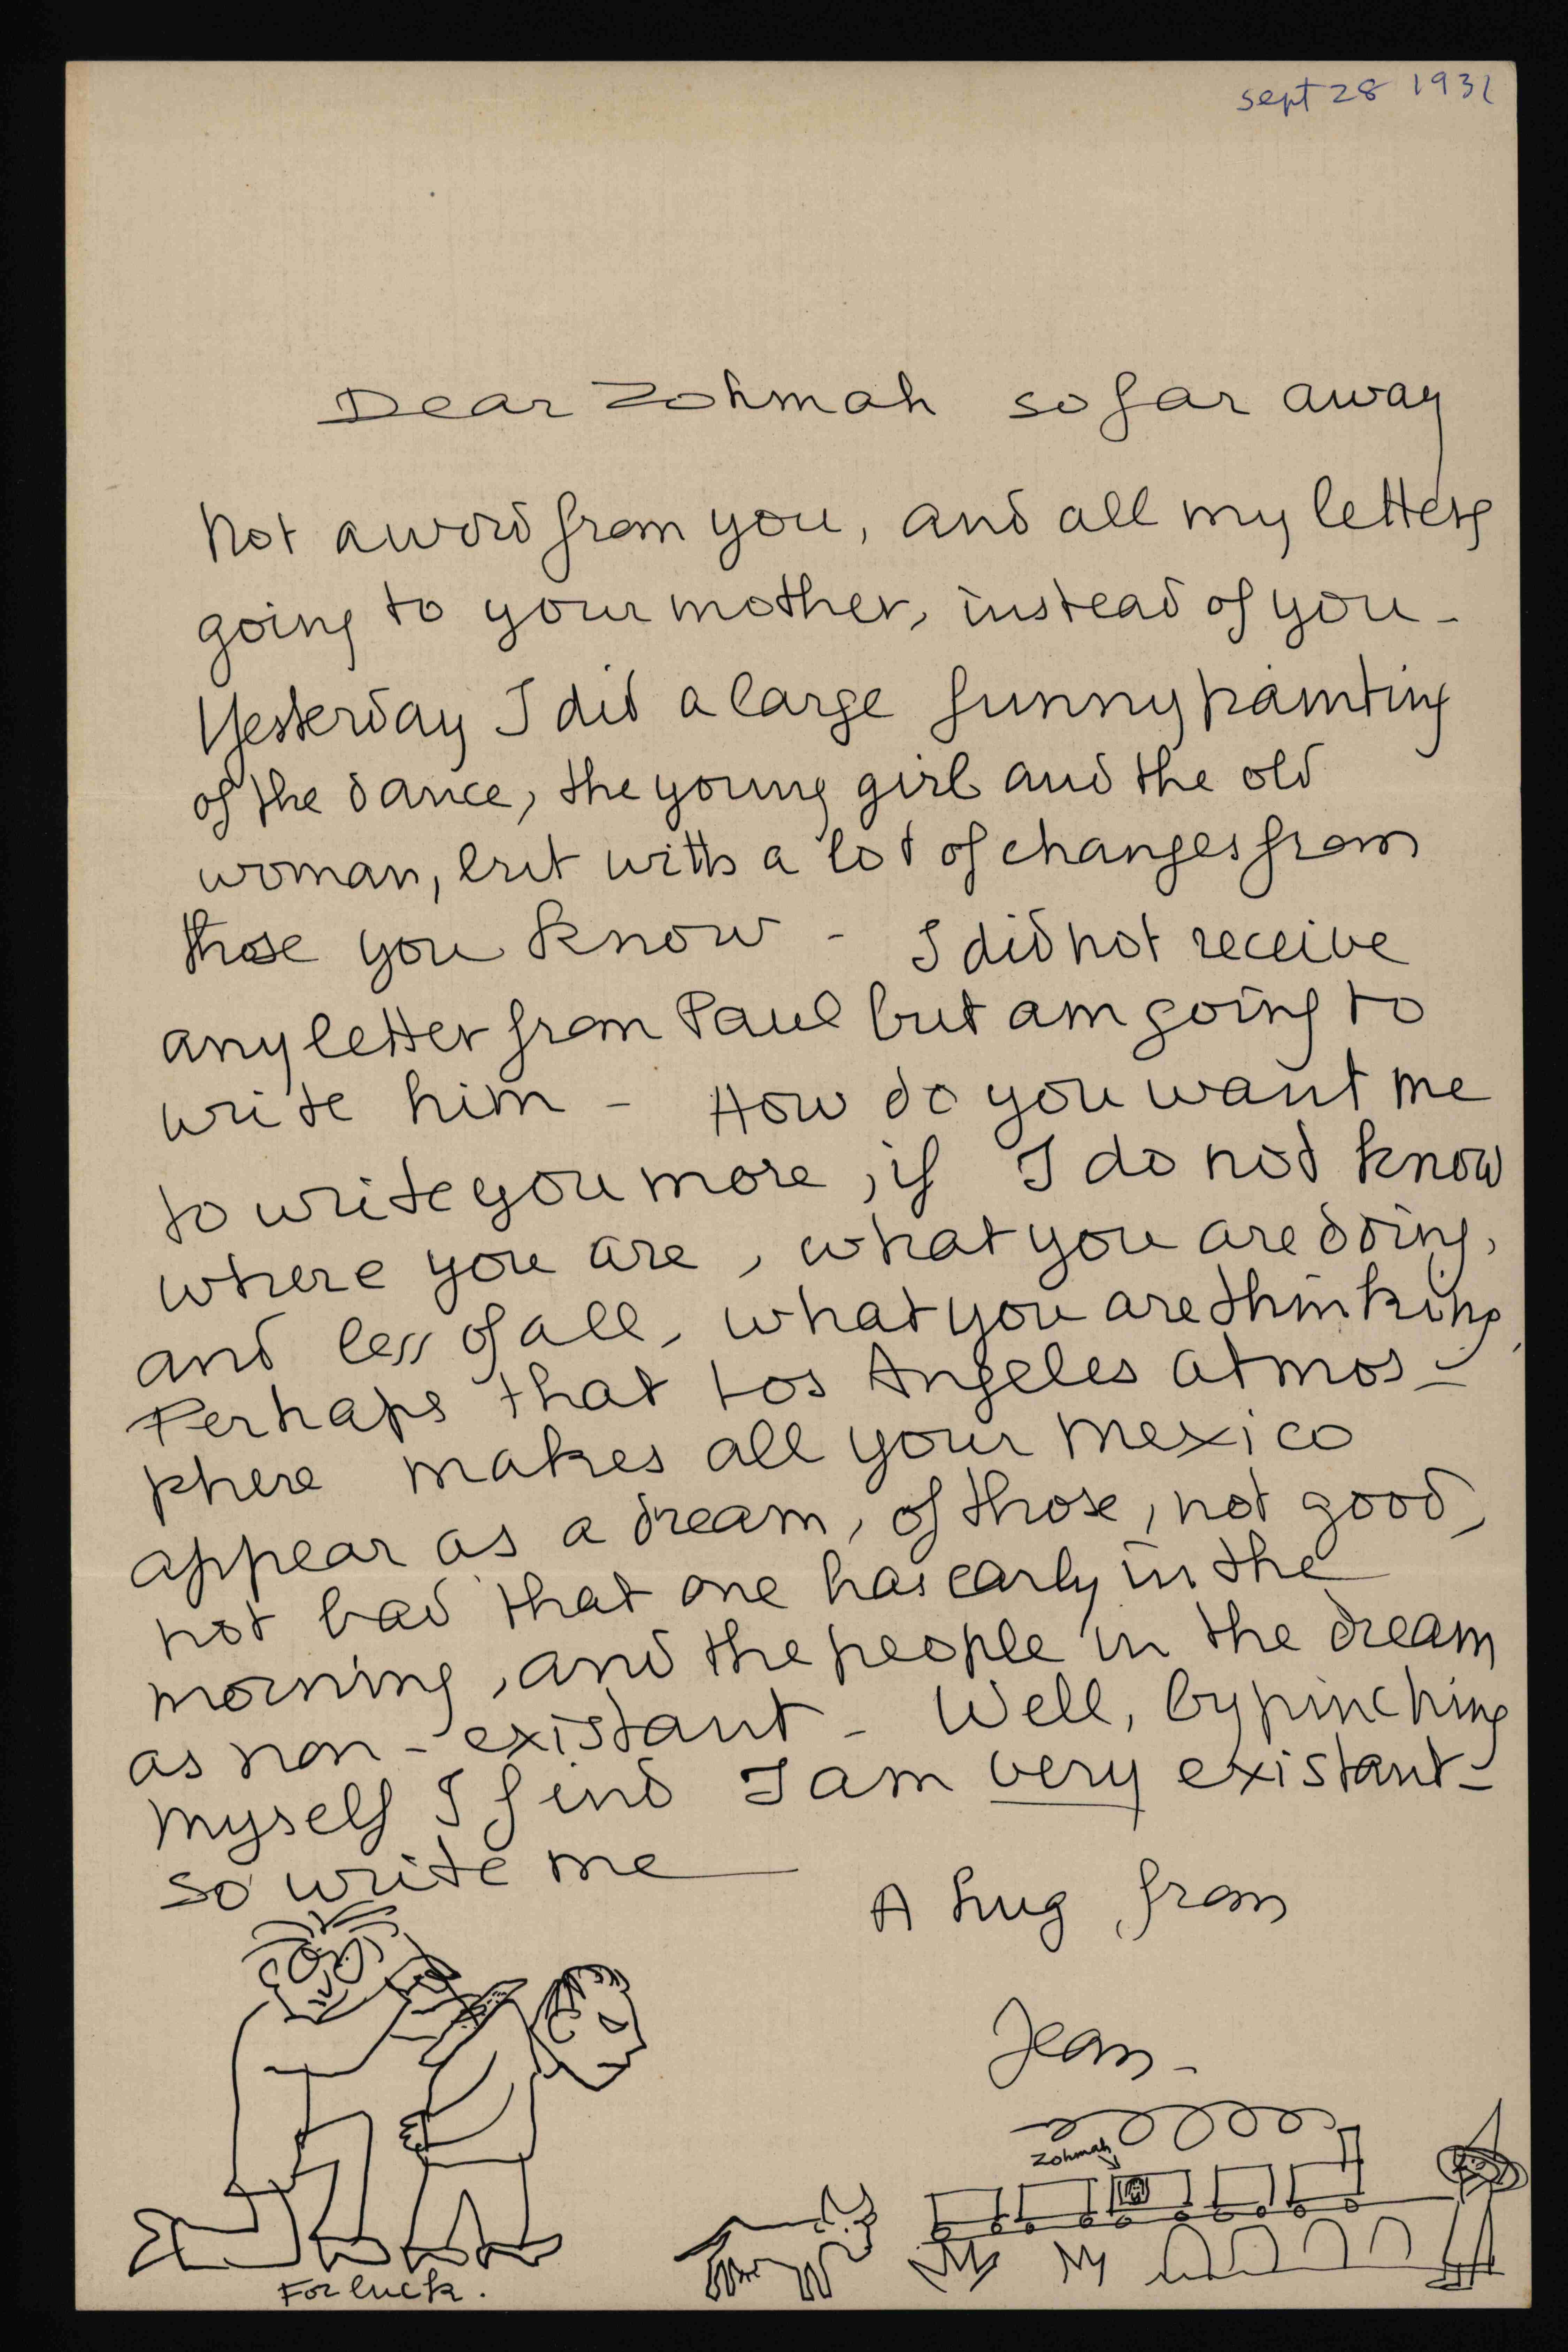 sept 28 1931
Dear Zohmah so far away
Not a word from you, and all my letters
going to your mother, instead of you -
Yesterday I did a large funny painting
of the dance, the young girl and the old
woman, but with a lot of changes from
those you know - I did not receive
any letter from Paul but am going to
write him - How do you want me
to write you more, if I do not know
where you are, what you are doing,
and less of all, what you are thinking,
Perhaps that Los Angeles atmos-
phere makes all your Mexico
appear as a dream, of those, not good,
not bad that one has early in the
morning, and the people in the dream
as non-existant - Well, by pinching
myself I find I am very existant -
so write me
A hug from
Jean -
Zohmah
For luck.